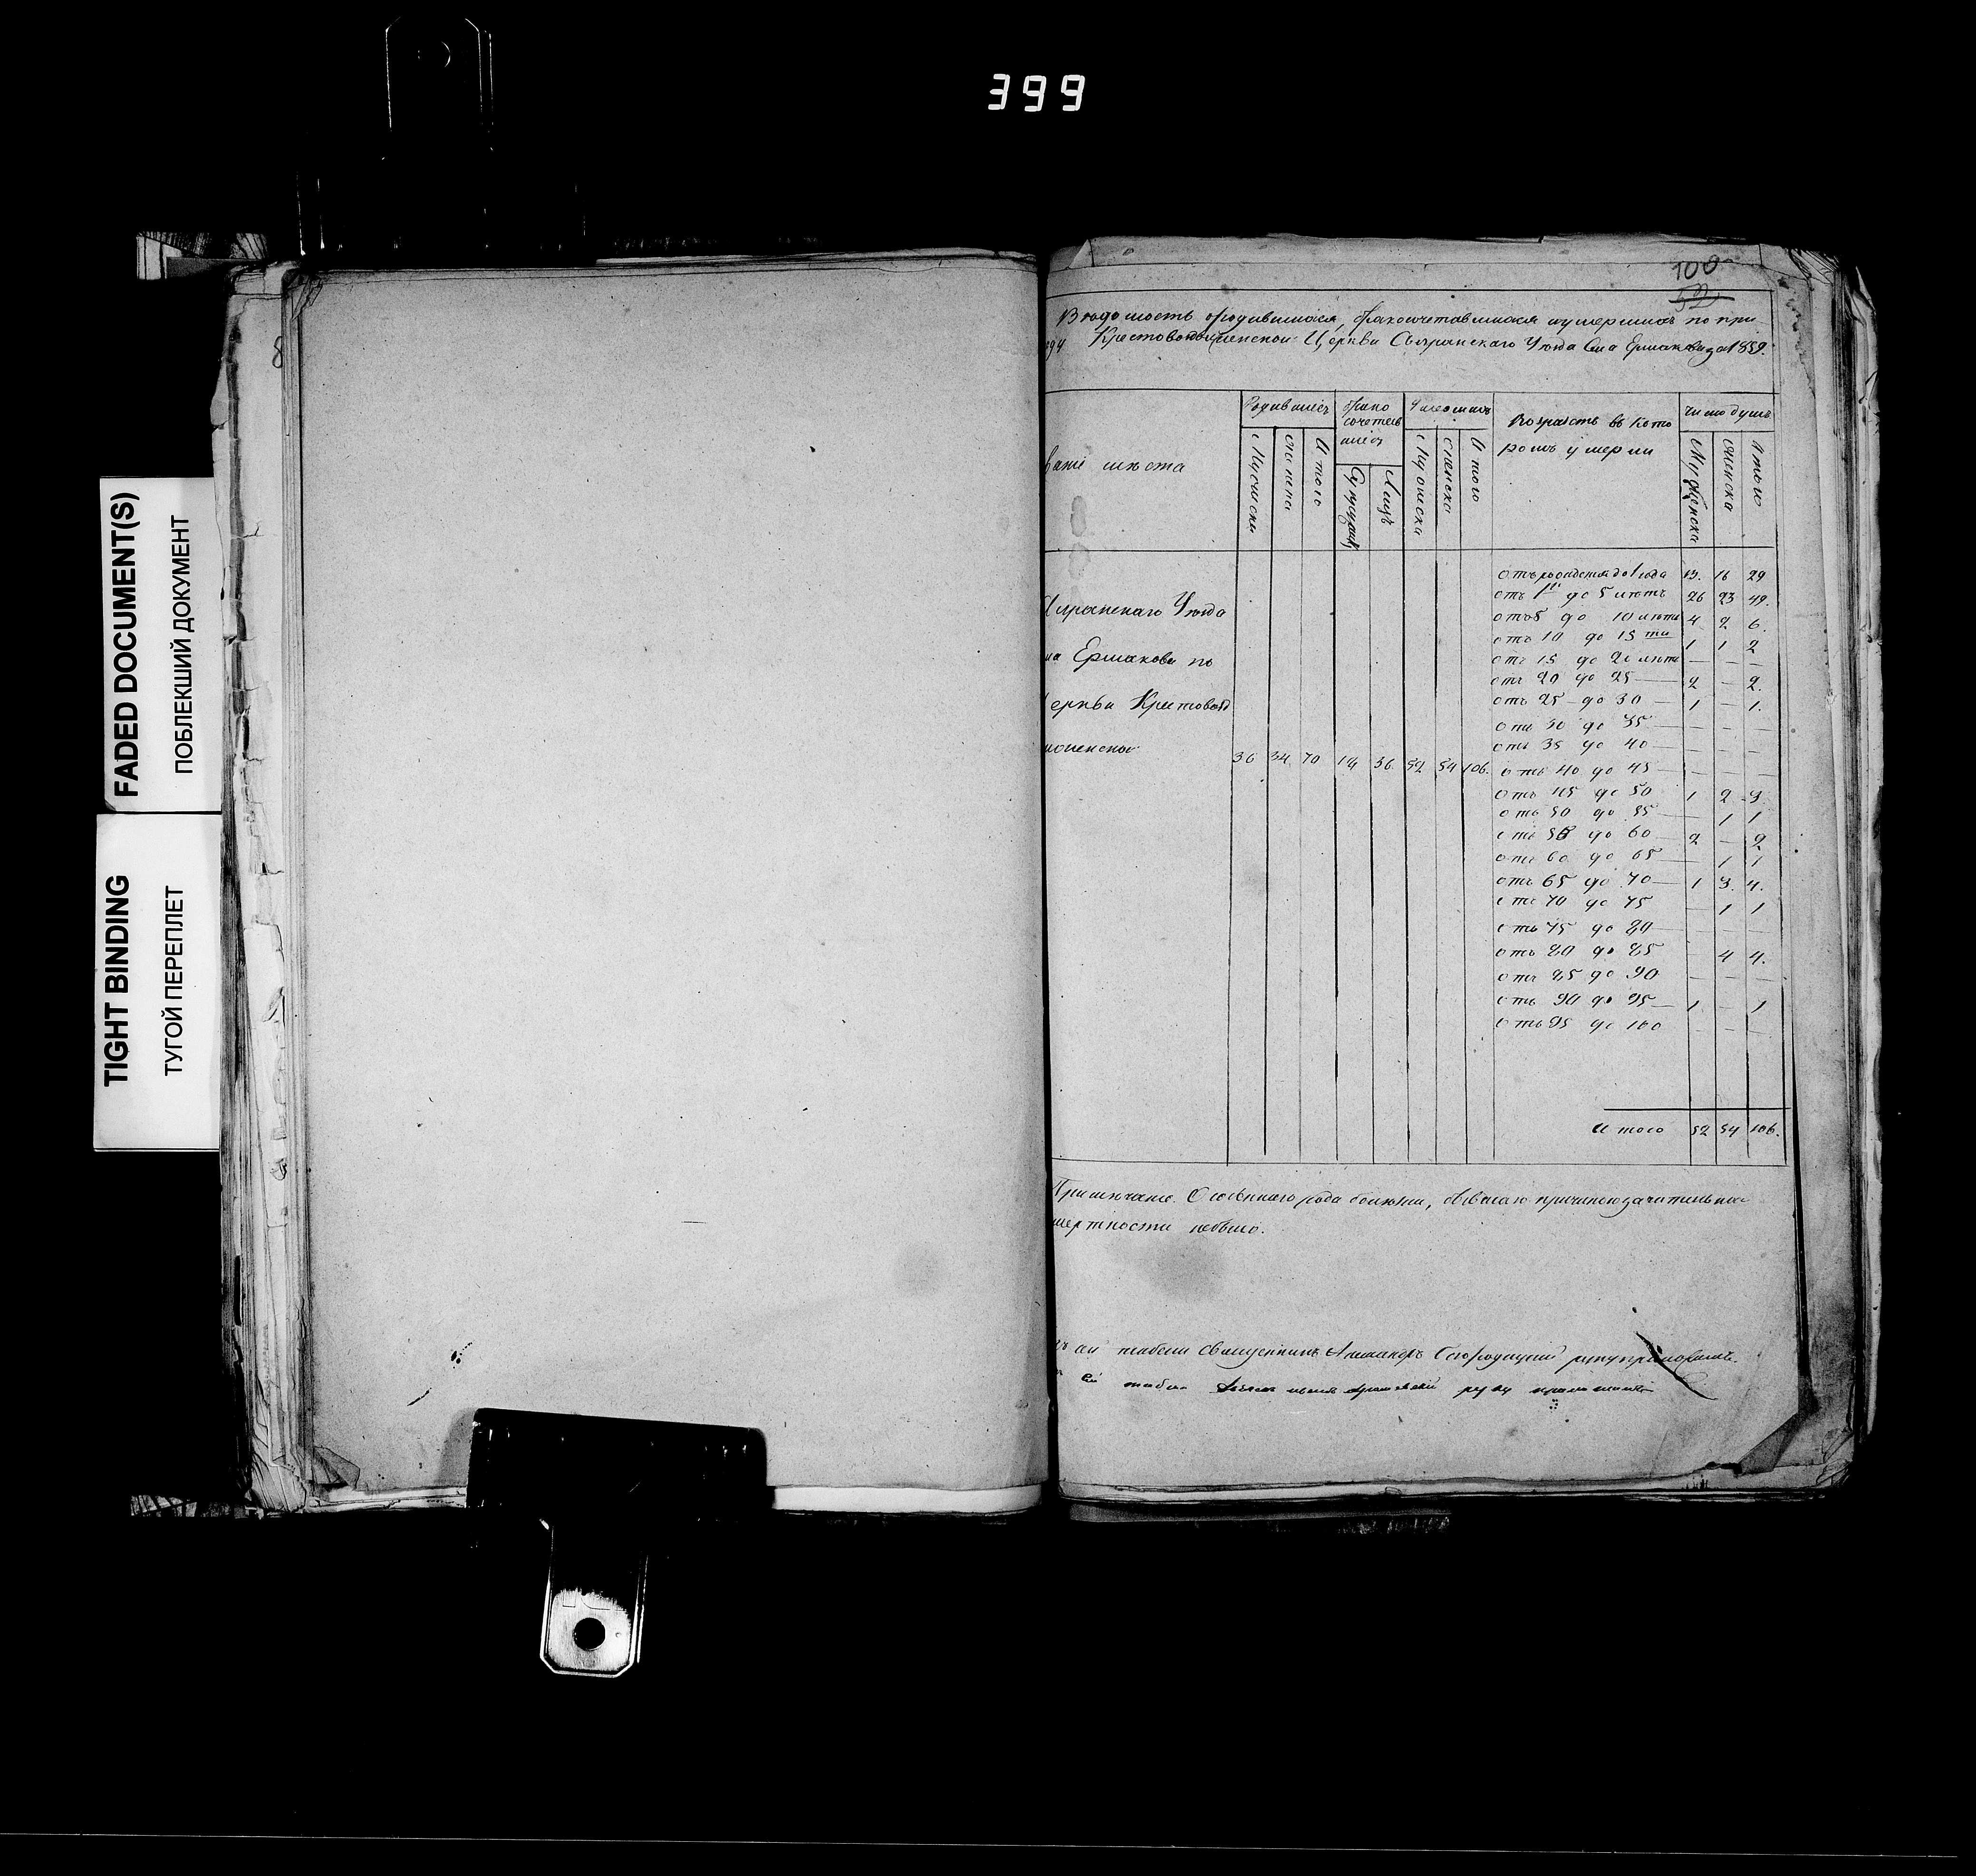 399
FADED DOCUMENT(S)
ПОБЛЕКШИЙ ДОКУМЕНТ
TIGHT BINDING
ТУГОЙ ПЕРЕПЛЕТ
8
100
52
Вѣдомость о родившихся, бракосочетавшихся и умершихъ по при
Крестовоздвиженской Церкви Сызранскаго Уѣзда Села Ермакова за 1859.
вание мѣста
Родившiеся
Мужеска
женска
Итого
брако
сочетав
шiеся
Супруж
Лицъ
Умершихъ
Мужеска
женска
Итого
Возрастъ въ кото
ромъ умерли
Число душъ
Мужеска
женска
Итого
ызранскаго Уѣзда
ла Ермакова по
еркви Крестовозд
женской
36 34 70 18 36. 52 54 106.
отъ рожденiя до 1 года 13. 16 29
отъ 1 до 5 лѣтъ 26 23 49.
отъ 5 до 10 лѣтъ 4 2 6.
отъ 10 до 15 ти 1 1 2
отъ 15 до 20 лѣтъ — — —
отъ 20 до 25 — 2 — 2.
отъ 25 до 30 — 1 — 1.
отъ 30 до 35 — — — —
отъ 35 до 40 — — — —
отъ 40 до 45 — — — —
отъ 45 до 50 1 2 3.
отъ 50 до 55 — — 1 1
отъ 55 до 60 — 2 — 2
отъ 60 до 65 — — 1 1
отъ 65 до 70 — 1 3. 4.
отъ 70 до 75 — 1 1
отъ 75 до 80 — — —
отъ 80 до 85 — 4 4.
отъ 85 до 90 — — —
отъ 90 до 95 — 1 — 1
отъ 95 до 100 — — —
Итого 52 54 106.
Примѣчанiе. Особеннаго рода болѣзни, бывшею причиною значительной
мертности небыло.
сей табели священникъ Александръ руку приложилъ.
сей табели руку приложилъ